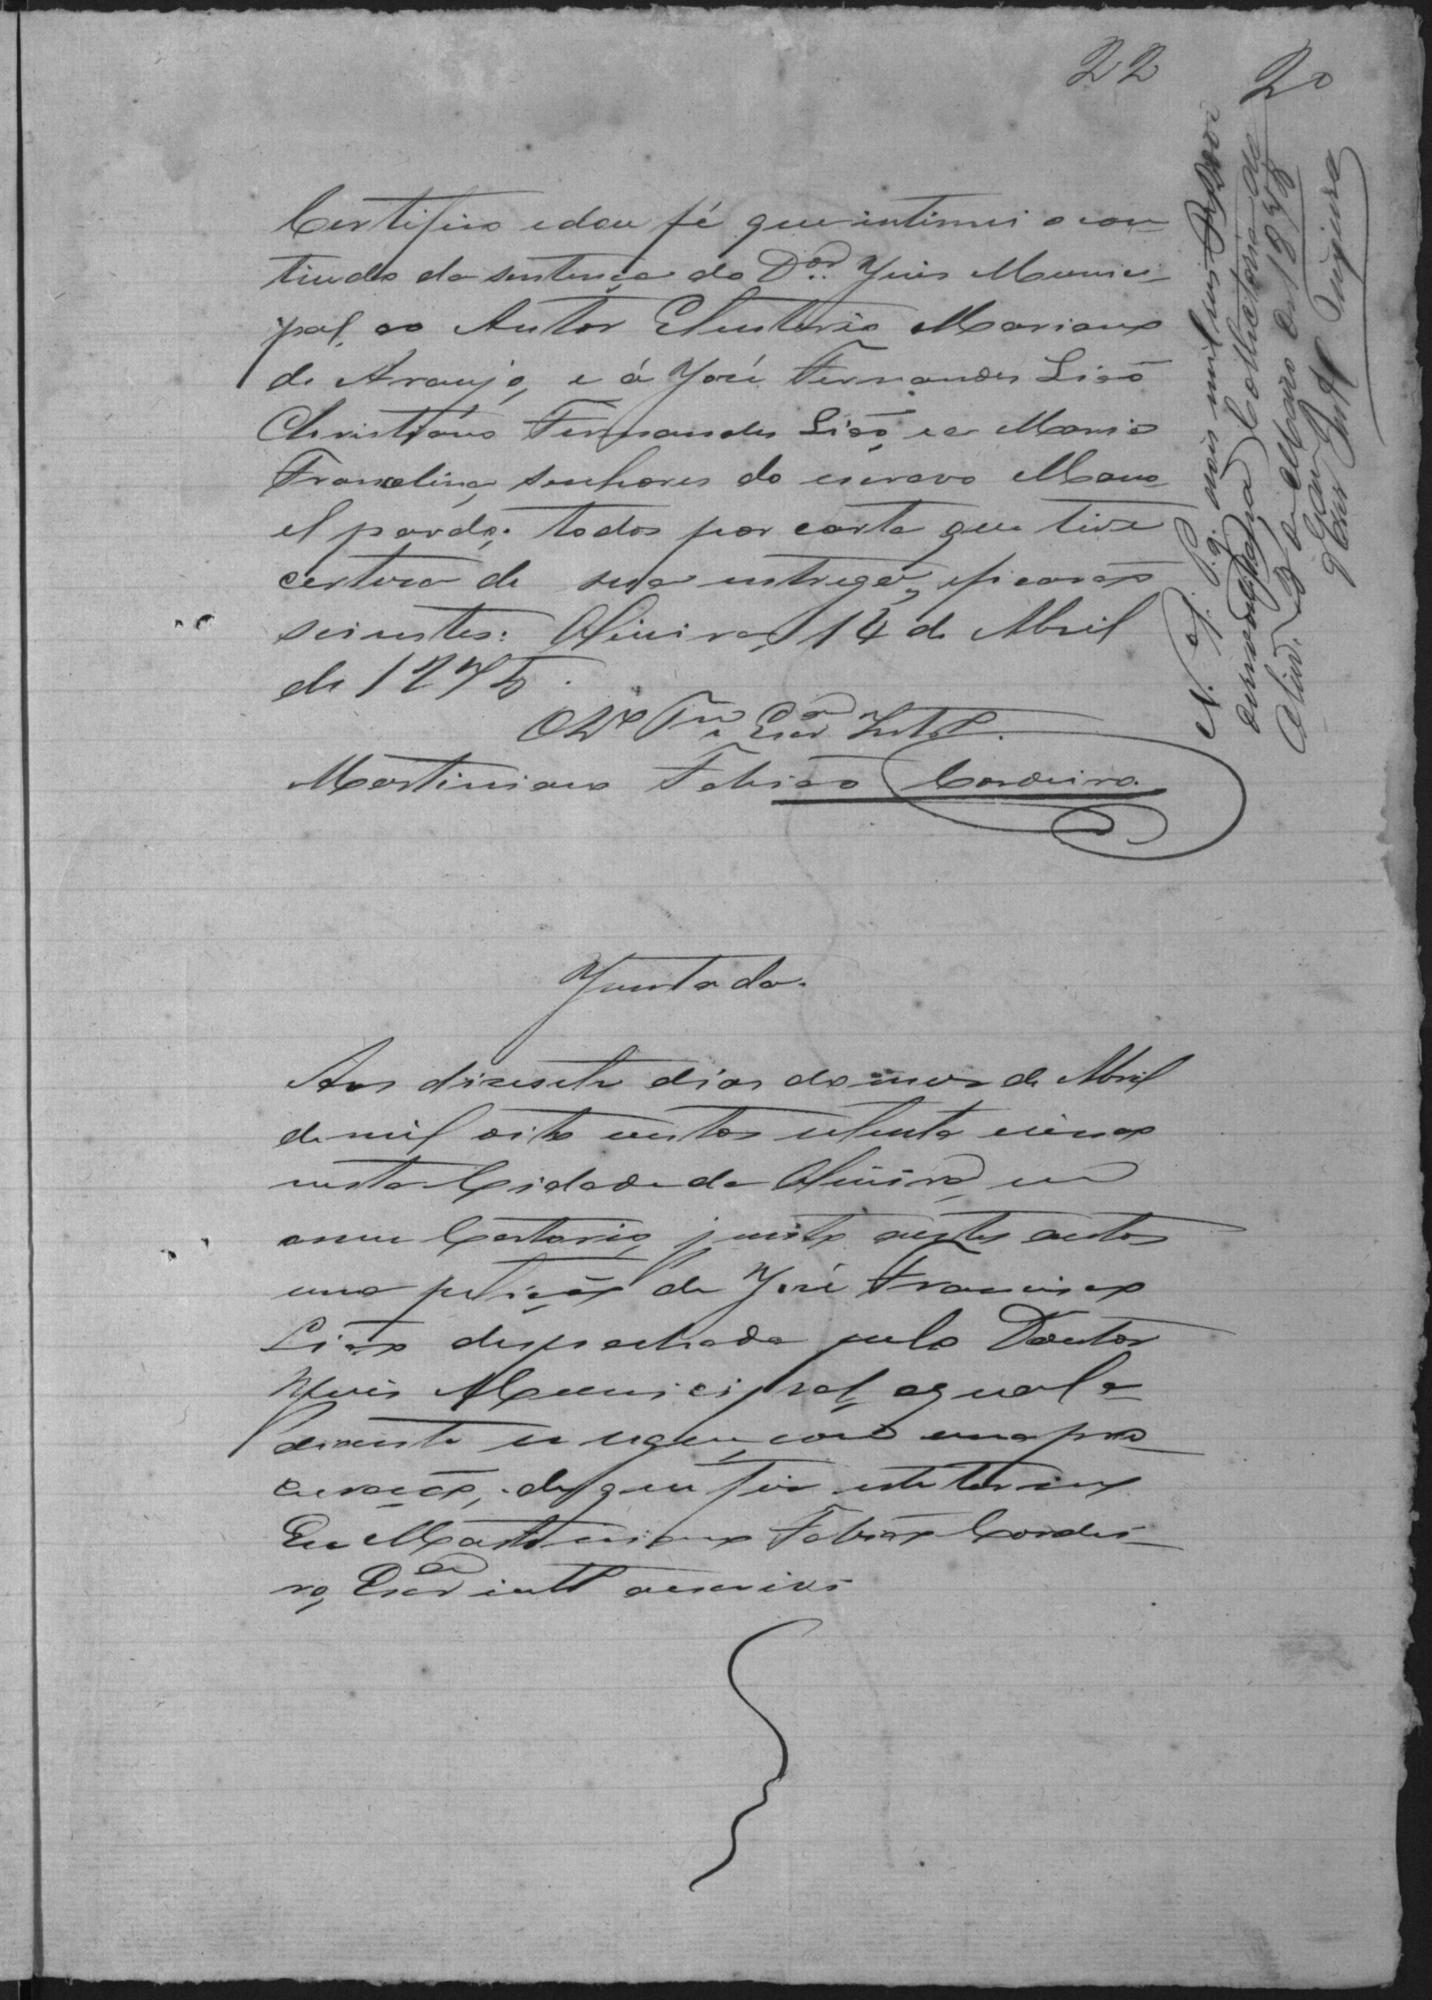 22
20
Certifico e dou fé que intimei o con
tiudo da sentença do D.or Juis Munici-
pal, ao Autor Eleuterio Mariano
de Araujo, e á José Fernandes Lião
Christiano Fernandes Lião, e a Maria
Francelina, senhores do escravo Mano
el pardo; todos por carta que tive
certeza de sua entrega, e ficarão
scientes: Oliveira, 14 de Abril
de 1875.
Martiniano Fabião Cordeiro.
Juntada.
Aos disesete dias do mes de Abril
de mil oito centos setenta e cinco
nesta Cidade da Oliveira, em
o meu Cartorio, junto a estes autos
uma petição de José Francisco
Lião despachada pelo Doutor
Juis Municipal, a qual a-
diante se segue, com uma pro-
curação, de que fis este termo
Eu Martiniano Fabião Cordei-
ro, Escr.am int.º o escrevi